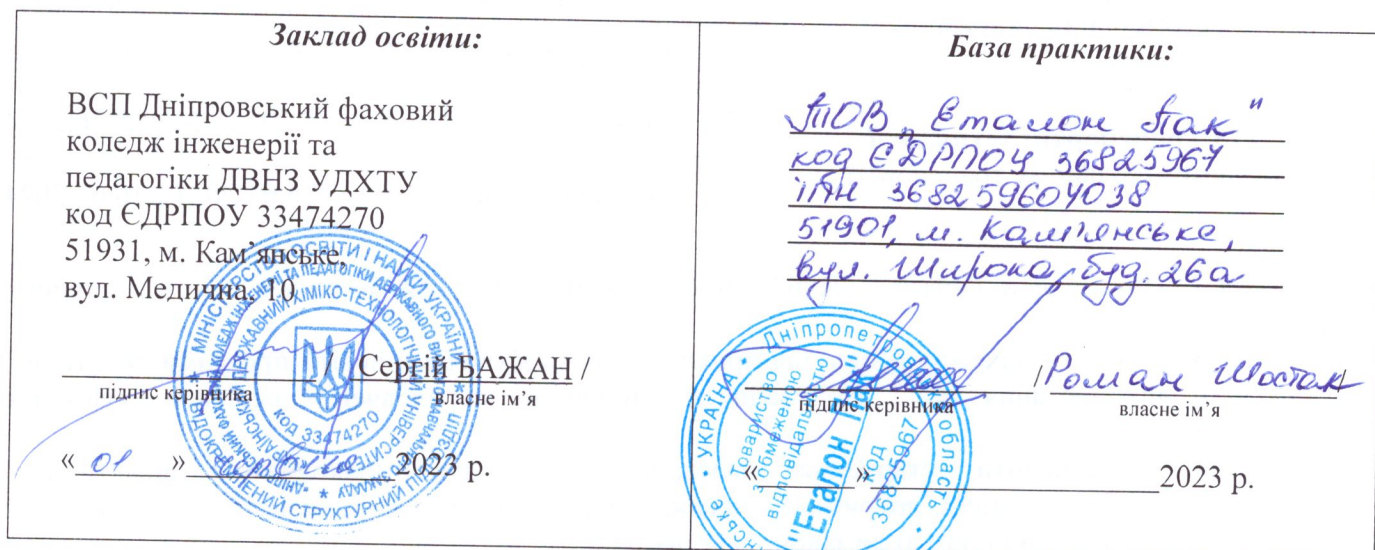 Заклад освіти:
ВСП Дніпровський фаховий
коледж інженерії та
педагогіки ДВНЗ УДХТУ
код ЄДРПОУ 33474270
51931, м. Кам’янське,
вул. Медична, 10
/ Сергій БАЖАН /
підпис керівника власне ім’я
« 01 » 2023 р.
МІНІСТЕРСТВО ОСВІТИ І НАУКИ УКРАЇНИ
ВІДОКРЕМЛЕНИЙ СТРУКТУРНИЙ ПІДРОЗДІЛ
код 33474270
База практики:
ТОВ „Еталон Пак"
код ЄДРПОУ 36825967
ІПН 368259604038
51901, м. Кам'янське,
вул. Широка, буд. 26а
/ Роман Шостак /
підпис керівника власне ім’я
« » 2023 р.
УКРАЇНА • Дніпропетровська область •
Товариство
з обмеженою
відповідальністю
"Еталон Пак"
код
36825967